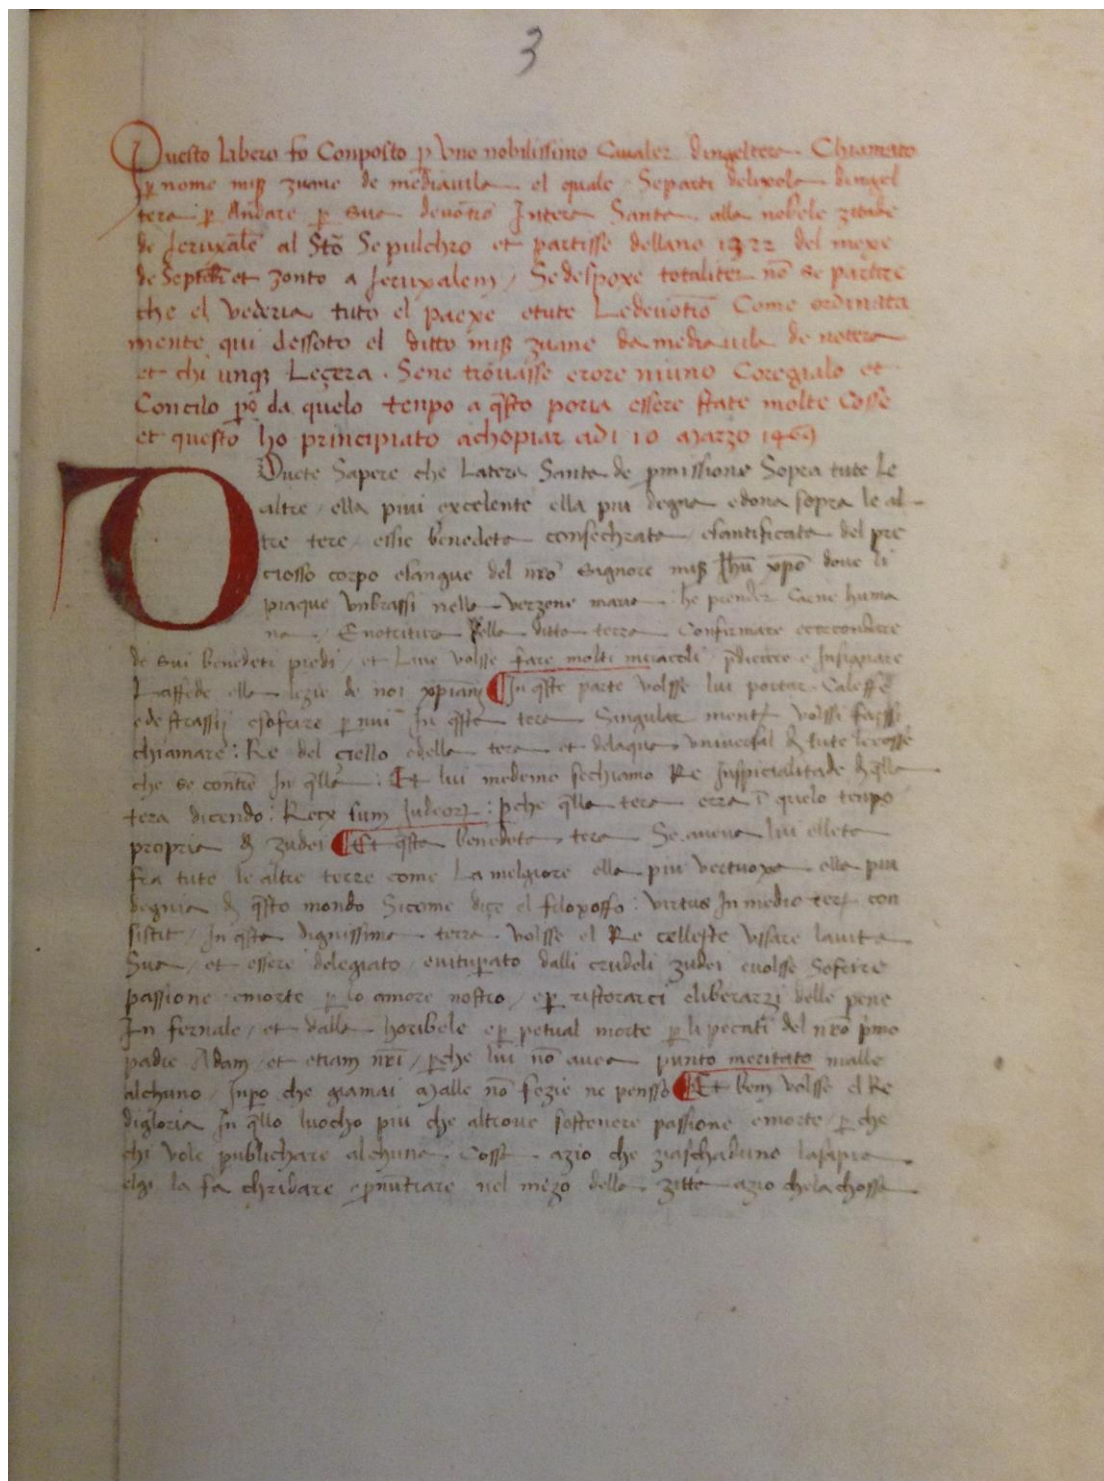 3
Questo libero fo Conposto p Uno nobilissimo Cavaler dingeltera Chiamato
p nome miss zuane de mediavila el quale Separti delixola dingel
tera p Andare p sua devotiō Intera Santa alla nobele zitade
de Jeruxalē al Stō Sepulchro et partisse dellano 1322 del mexe
de Septēbr et zonto a Jeruxalem / Se despoxe totaliter nō se partire
che el vederia tuto el paexe etute Ledevotiō Come ordinata
mente qui dessoto el ditto miss zuane da mediavila de notera
et chi unqȝ Leçera . Sene trovasse erore niuno Coregialo et
Concilo pō da quelo tenpo a qsto poria essere state molte Cosse
et questo ho principiato achopiar adi 10 Marzo 1469
Dovete Sapere che Latera Santa de pmissione Sopra tute Le
altre / ella piui excelente ella piu degna edona sopra le al-
tre tere / essie benedeta consechrata / esantificata del pre
ciosso corpo esangue del nrō Signore miss Jhū xpō dove li
piaque Unbrassi nella verzene maria he prender Carne huma
na / E notritura della ditta terra Confirmare
de Sui benedeti piedi / et Luie volsse fare molti miracoli pdicare e Insignare
Laffede ella lezie de noi xpiani In qste parte volsse lui portar Caleffe
e de strassij esofrire p nui In qsta tera Singular mente volssi
chiamare : Re del ciello edella tera et delaqua Universal d tute le cosse
che se contiē In qlla : Et lui medemo sechiamo Re Inspicialitade d qlla
tera dicendo : Recx sum Judeorȝ : pche qlla tera erra ī quelo tenpo
propria d zudei Et qsta benedeta tera Se aveva lui elleta
fra tute le altre terre come La melgiore ella piu vertuoxa ella piu
degnia d qsto mondo Sicome dice el filoxoffo : Virtus In medio con
sistit / In qsta dignissima terra volsse el Re celleste Ussare lavita
Sua / et essere delegiato / evitupato dalli crudeli zudei evolsse Sofrire
passione emorte p lo amore nostro / ep ristorarci eliberarzi delle pene
In fernale / et dalla horibele ep petual morte p li pecati del nrō pmo
padre Adam / et etiam nrī / pche lui nō avea punto meritato malle
alchuno / Inpo che giamai Malle nō fezie ne penssò Et bem volsse el Re
digloria In qllo luocho piu che altrove sostenere passione emorte / p che
chi vole publichare alchuna Cossa azio che ziaschaduno lasapia
elgi la fa chridare epnūtiare nel mezo della zittà azio chela chossa